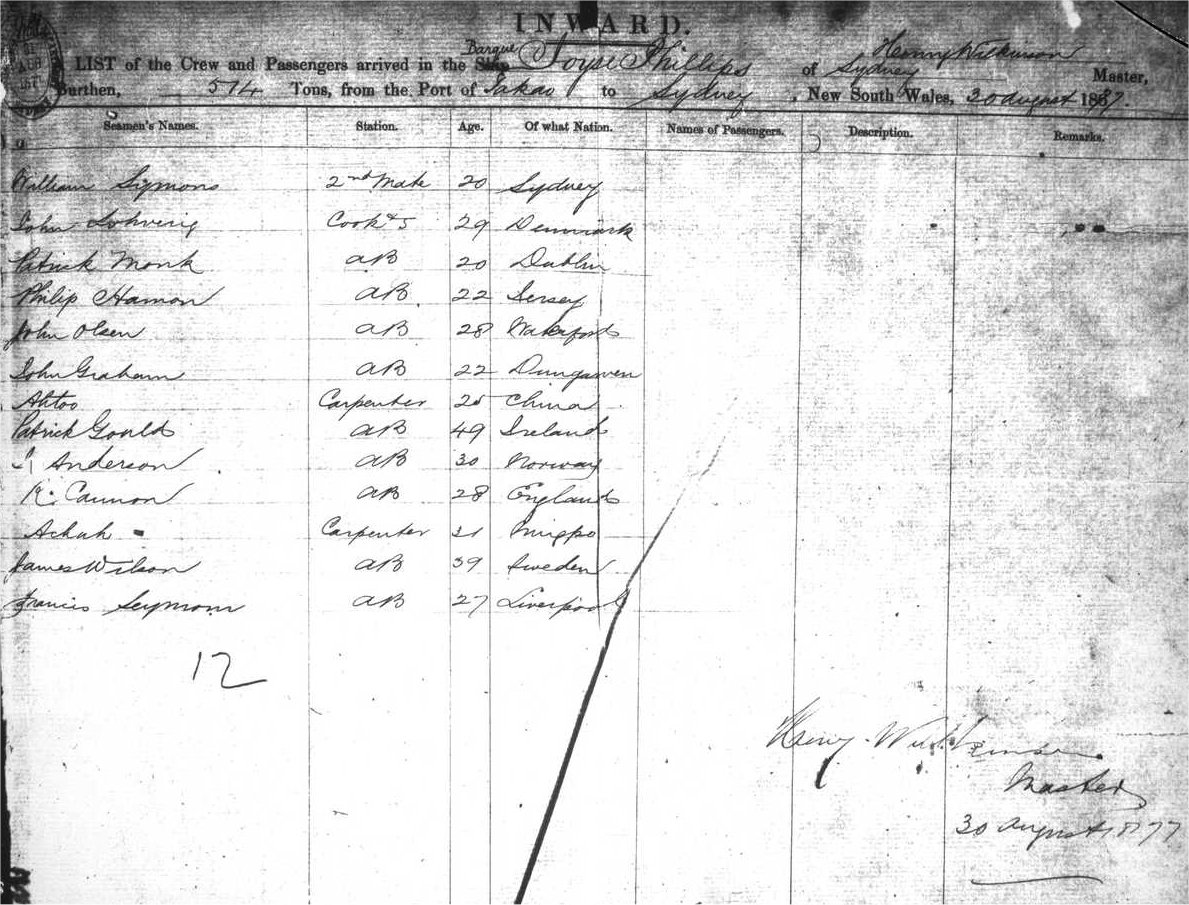 INWARD.
Barque Henry Wilkinson
LIST of the Crew and Passengers arrived in the Ship Joyse Phillips of Sydney Master,
Burthen, 514 Tons, from the Port of Takao to Sydney, New South Wales, 30 august 1877.
Seamen's Names. Station. Age. Of what Nation. Names of Passengers. Description. Remarks.
William Symons 2nd Mate 20 Sydney
John Cook & S 29 Denmark
Patrick Monk AB 20 Dublin
Philip Hamon AB 22 Jersey
John Olsen AB 28 Waterford
John Graham AB 22 Dungarven
Ahtoo Carpenter 25 China
Patrick Gould AB 49 Ireland
Anderson AB 30 Norway
R. Cannon AB 28 England
Achuk Carpenter 31 Ningpo
James Wilson AB 39 Sweden
Francis Seymour AB 27 Liverpool
12
Henry Wilkinson
Master
30 August 1877